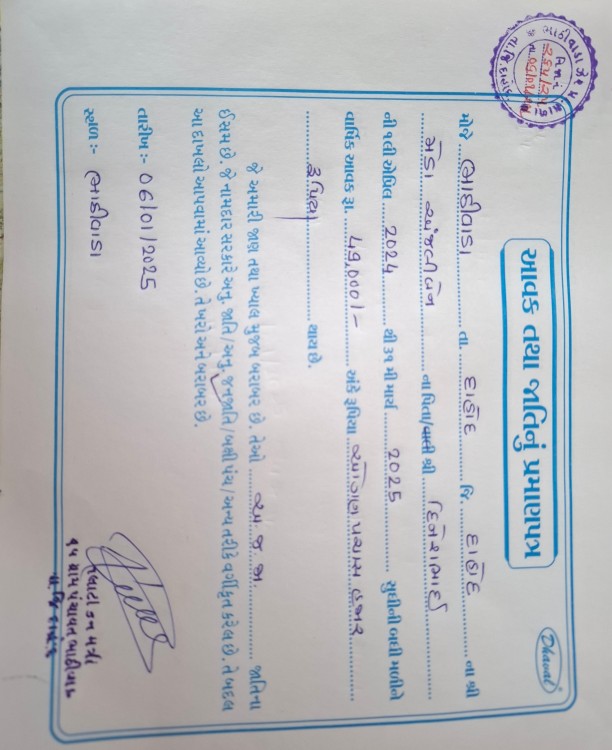 Dhawal
આવક તથા જાતિનું પ્રમાણપત્ર
મોજે ભાઠીવાડા તા. દાહોદ જિ. દાહોદ ના શ્રી
મેડા અંજલીબેન ના પિતા/પતી શ્રી દિનેશભાઈ
ની ૧લી એપ્રિલ 2024 થી ૩૧ મી માર્ચ 2025 સુધીની બધી મળીને
વાર્ષિક આવક રૂા. 49,000/- અંકે રૂપિયા ઓગણ પચાસ હજાર
રૂપિયા થાય છે.
જે અમારી જાણ તથા ખ્યાલ મુજબ બરાબર છે. તેઓ અ.જ.જા. જાતિના
ઈસમ છે. જે નામદાર સરકારે અનુ. જાતિ/અનુ. જનજાતિ/બક્ષી પંચ/અન્ય તરીકે વર્ગીકૃત કરેલ છે. તે બદલ
આ દાખલો આપવામાં આવ્યો છે. તે ખરો અને બરાબર છે.
તારીખ :- 06/01/2025
સ્થળ :- ભાઠીવાડા
તલાટી કમ મંત્રી